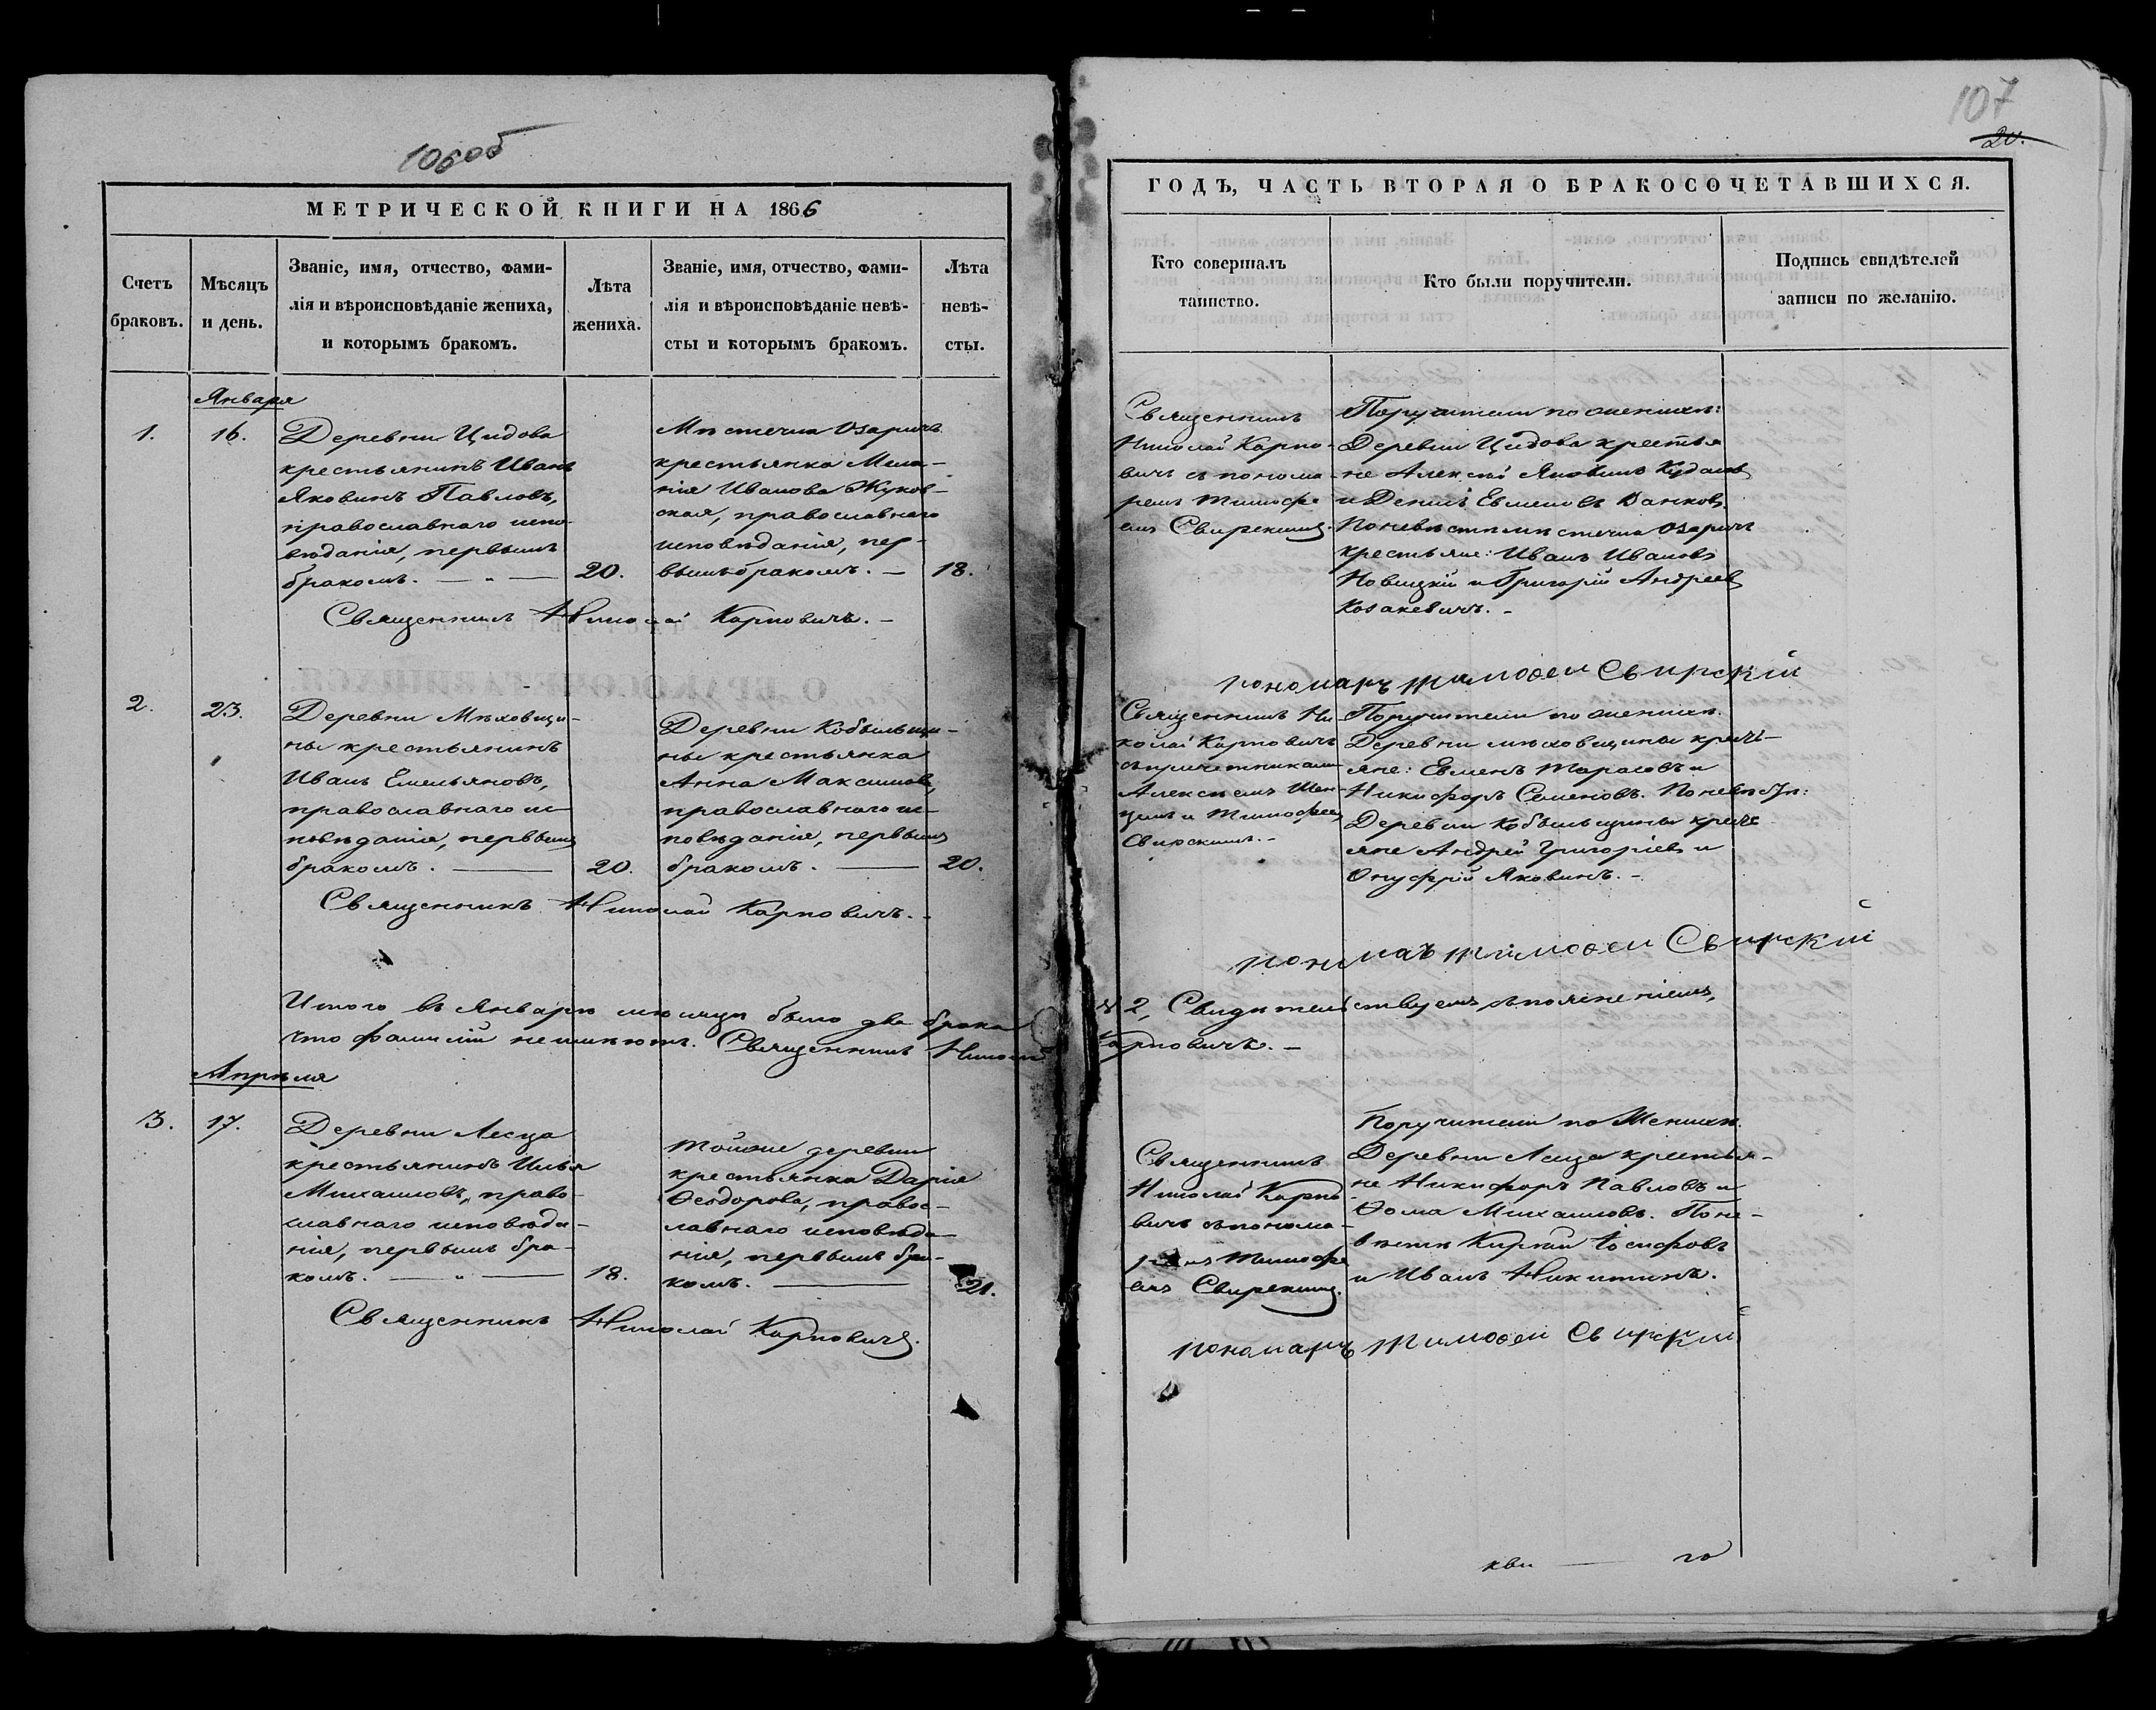 106об
МЕТРИЧЕСКОЙ КНИГИ НА 1866
Счетъ
браковъ.
Мѣсяцъ
и день.
Званіе, имя, отчество, фами-
лія и вѣроисповѣданіе жениха,
и которымъ бракомъ.
Лѣта
жениха.
Званіе, имя, отчество, фами-
лія и вѣроисповѣданіе невѣ-
сты и которымъ бракомъ.
Лѣта
невѣ-
сты.
Января
1.
16.
Деревни Цидова
крестьянинъ Иванъ
Яковинъ Павловъ,
православнаго испо-
вѣданія, первымъ
бракомъ. — „ —
20.
Мѣстечка Озаричъ
крестьянка Мела-
нія Иванова Жуков-
ская, православнаго
исповѣданія, пер-
вымъ бракомъ. —
18.
Священникъ Николай Карповичъ. —
2.
23.
Деревни Мѣховщи-
ны крестьянинъ
Иванъ Емельяновъ,
православнаго ис-
повѣданія, первымъ
бракомъ. —
20.
Деревни Кобыльщи-
ны крестьянка
Анна Максимова,
православнаго ис-
повѣданія, первымъ
бракомъ. —
20.
Священникъ Николай Карповичъ. -
Итого въ Январѣ мѣсяцѣ было два брака
что фамилій неимѣютъ. Священникъ Николай
Апрѣля
3.
17.
Деревни Лесца
крестьянинъ Илья
Михаиловъ, право-
славнаго исповѣда-
нія, первымъ бра-
комъ. — „ —
18.
Тойже деревни
крестьянка Дарія
Ѳеодорова, правос-
лавнаго исповѣда-
нія, первымъ бра-
комъ. —
21.
Священникъ Николай Карповичъ.
107
20.
ГОДЪ, ЧАСТЬ ВТОРАЯ О БРАКОСОЧЕТАВШИХСЯ.
Кто совершалъ
таинство.
Кто были поручители.
Подпись свидѣтелей
записи по желанію.
Священникъ
Николай Карпо-
вичъ съ понома-
ремъ Тимофе-
емъ Свирскимъ.
Поручители по женихѣ:
Деревни Цидова крестья-
не Алексѣй Яковинъ
и Евменовъ
Поневѣстѣ мѣстечка Озаричъ
крестьяне: Иванъ Ивановъ
Новицкій и Григорій Андреевъ
Козакевичъ. -
пономаръ Тимоѳей Свирскій
Священникъ Ни-
колай Карповичъ
съ причетниками
Алексѣемъ
и Тимофеемъ
Свирскимъ. -
Поручители по женихѣ.
Деревни мѣховщины кресть-
яне: Евменъ Тарасовъ и
Никифоръ Семеновъ. Поневѣстѣ:
Деревни Кобыльщины кресть-
яне Андрей Григоріевъ и
Онуфрій Яковинъ. -
пономаъ Тимоѳей Свирскій
№ 2, Свидѣтельствуемъ съ поясненіемъ,
Карповичъ. —
Священникъ
Николай Карпо-
вичъ съ понома-
ремъ Тимофе-
емъ Свирскимъ.
Поручители по Женихѣ.
Деревни Лесца крестья-
не Никифоръ Павловъ и
Ѳома Михаиловъ. Поне-
вѣстѣ Кирилъ Іосифовъ
и Иванъ Никитинъ.
пономаръ Тимоѳей Свирскій
кви — го